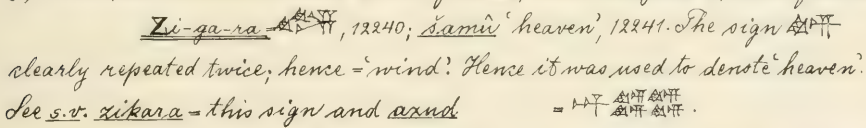 Zi-ga-ra = , 12240; šamû 'heaven', 12241. The sign
clearly repeated twice; hence = 'wind'. Hence it was used to denote 'heaven'.
See s.v. zikara = this sign and azud =